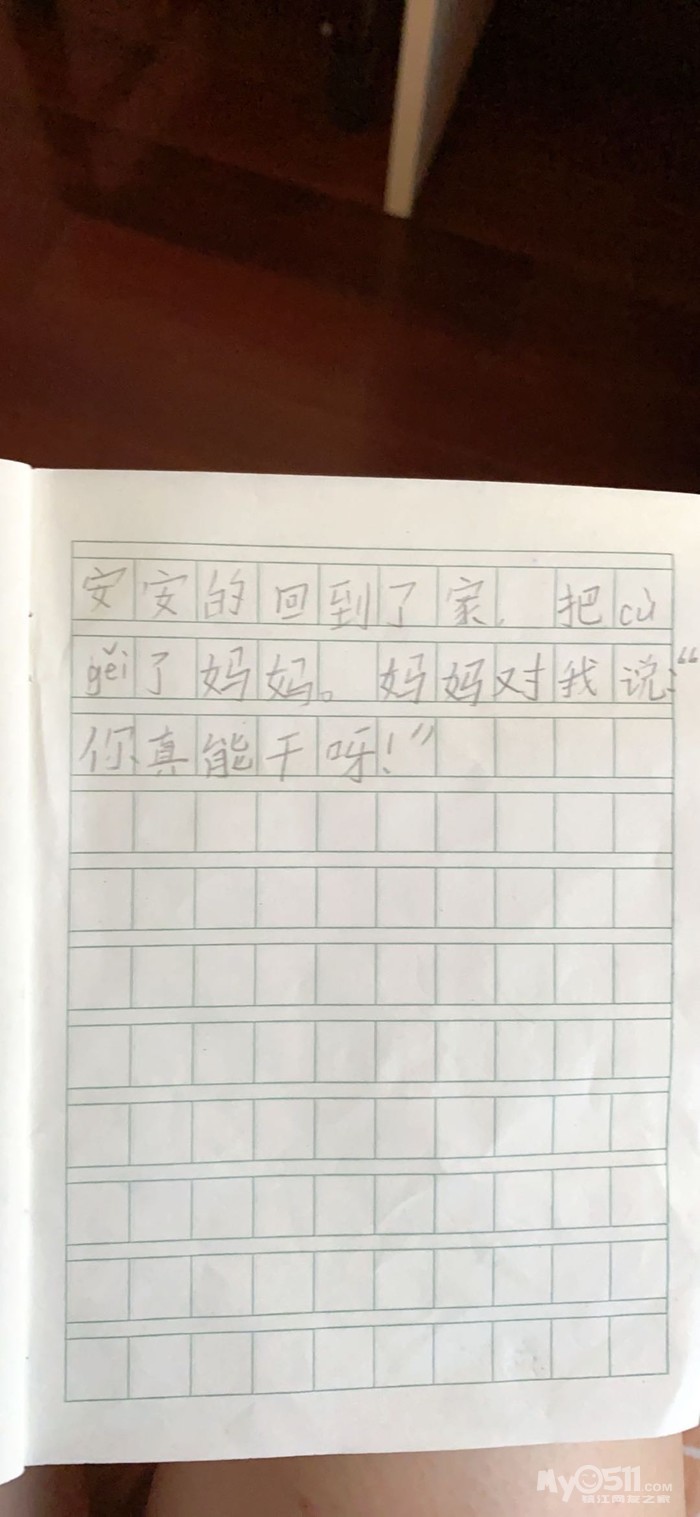 安安的回到了家，把cù
gěi了妈妈。妈妈对我说：“
你真能干呀！”
My0511.COM
镇江网友之家